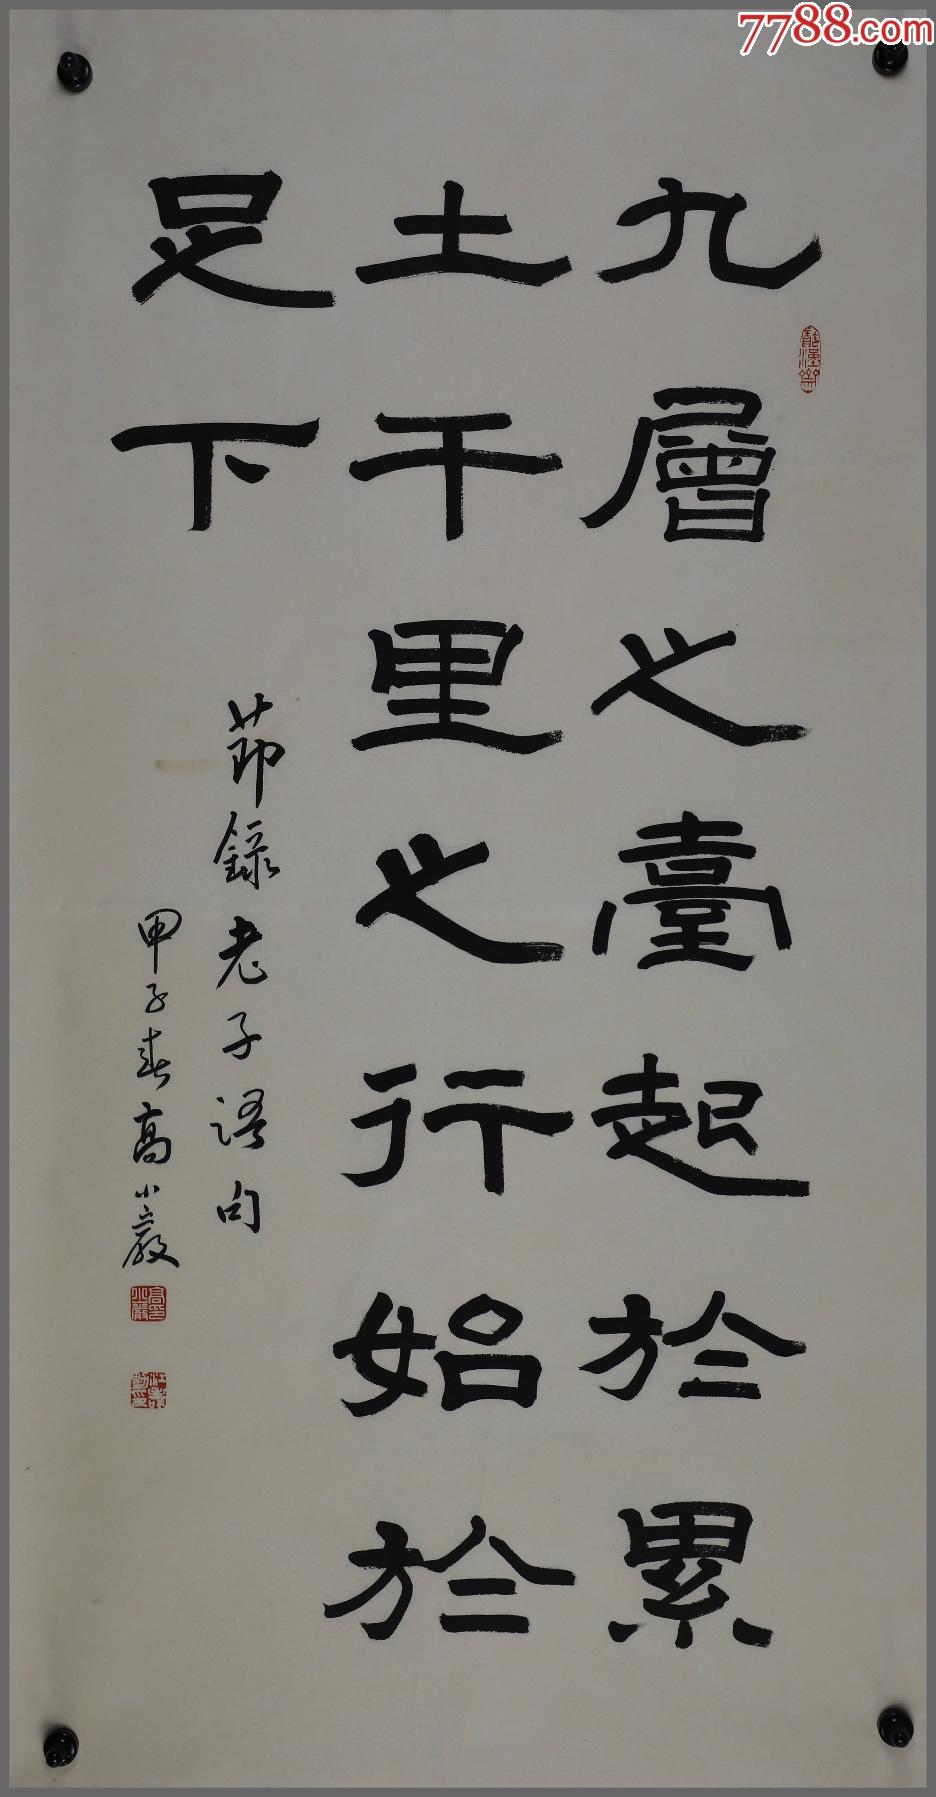 九層之臺起於累
土千里之行始於
足下
節錄老子語句
甲子春高小巖
7788.com